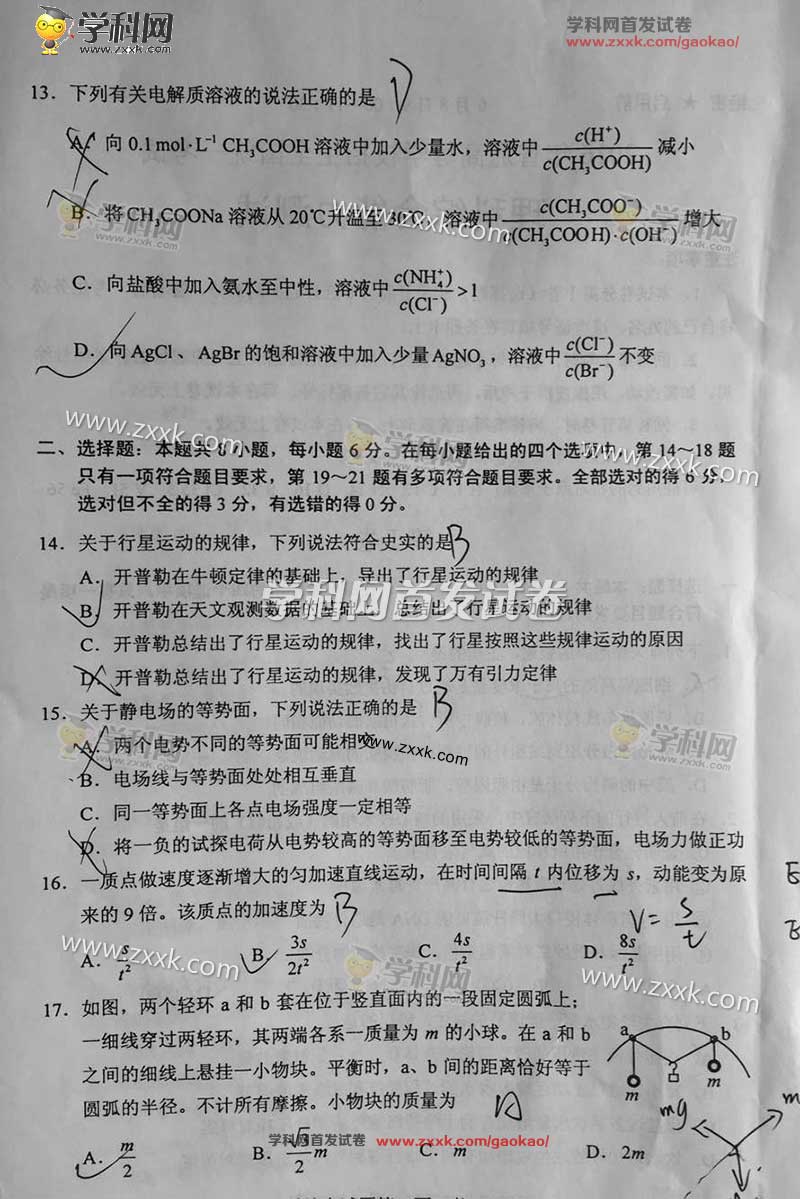 学科网
www.zxxk.com
学科网首发试卷
www.zxxk.com/gaokao/
13. 下列有关电解质溶液的说法正确的是 D
A. 向 0.1 mol·L⁻¹ CH₃COOH 溶液中加入少量水，溶液中 c(H⁺)/c(CH₃COOH) 减小
B. 将 CH₃COONa 溶液从 20℃升温至 30℃，溶液中 c(CH₃COO⁻)/c(CH₃COOH)·c(OH⁻) 增大
学科网
zxxk.com
www.zxxk.com
学科网
C. 向盐酸中加入氨水至中性，溶液中 c(NH₄⁺)/c(Cl⁻) >1
D. 向 AgCl、AgBr 的饱和溶液中加入少量 AgNO₃，溶液中 c(Cl⁻)/c(Br⁻) 不变
www.zxxk.com
学科网
二、选择题：本题共 8 小题，每小题 6 分。在每小题给出的四个选项中，第 14～18 题
只有一项符合题目要求，第 19～21 题有多项符合题目要求。全部选对的得 6 分，
选对但不全的得 3 分，有选错的得 0 分。
www.zxxk.com
14. 关于行星运动的规律，下列说法符合史实的是 B
A. 开普勒在牛顿定律的基础上，导出了行星运动的规律
学科网首发试卷
B. 开普勒在天文观测数据的基础上，总结出了行星运动的规律
C. 开普勒总结出了行星运动的规律，找出了行星按照这些规律运动的原因
D. 开普勒总结出了行星运动的规律，发现了万有引力定律
15. 关于静电场的等势面，下列说法正确的是 B
学科网
学科网
A. 两个电势不同的等势面可能相交
www.zxxk.com
B. 电场线与等势面处处相互垂直
C. 同一等势面上各点电场强度一定相等
D. 将一负的试探电荷从电势较高的等势面移至电势较低的等势面，电场力做正功
16. 一质点做速度逐渐增大的匀加速直线运动，在时间间隔 t 内位移为 s，动能变为原
来的 9 倍。该质点的加速度为 B
V = s/t
A. s/t² B. 3s/2t² C. 4s/t² D. 8s/t²
www.zxxk.com
学科网
www.zxxk.com
17. 如图，两个轻环 a 和 b 套在位于竖直面内的一段固定圆弧上；
一细线穿过两轻环，其两端各系一质量为 m 的小球。在 a 和 b
之间的细线上悬挂一小物块。平衡时，a、b 间的距离恰好等于
圆弧的半径。不计所有摩擦。小物块的质量为 A
a b
m m
mg
A. m/2 B. √3/2 m C. m D. 2m
学科网首发试卷 www.zxxk.com/gaokao/